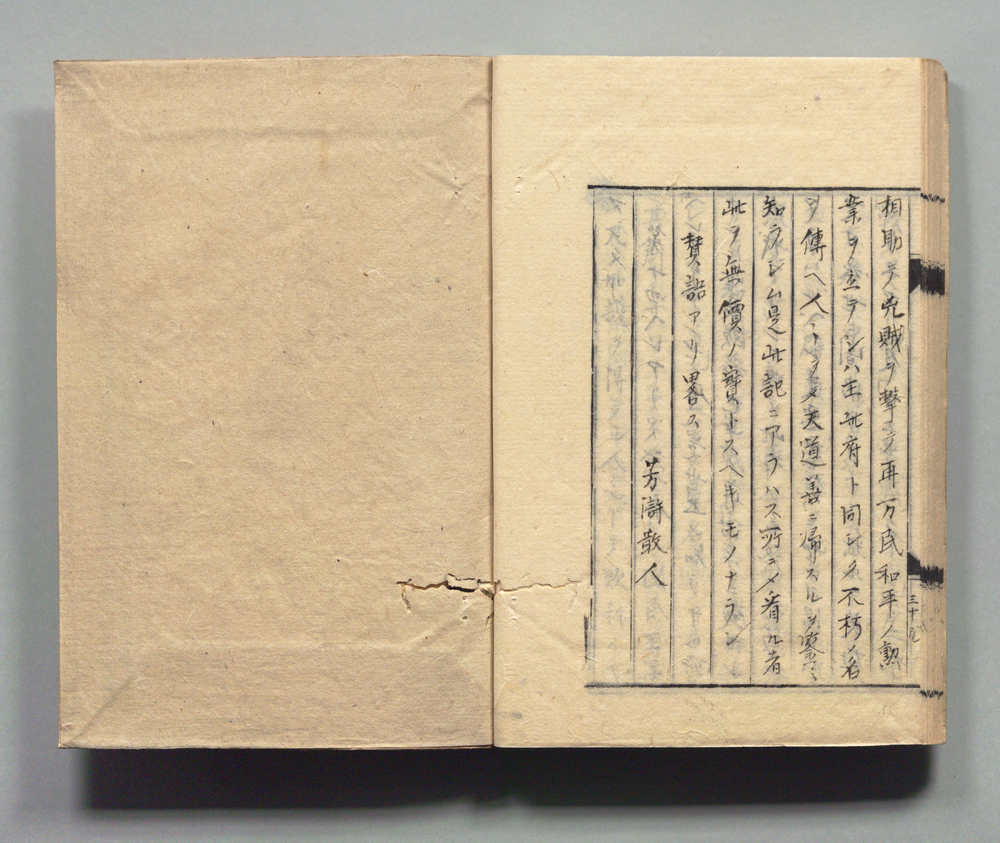 相助ヲ兇賊ヲ撃 再万民和平ノ勲
業ヲ立ラシハ主此府ト同シク不朽ノ名
ヲ傳ヘ人ヲ 夫道善ニ帰スルヲ
知ラシム是此記ニアラハス所ニメ看ル者
此ヲ無價ノ寳トスヘキモノナラン
賛語アリ畧ス
芳滸散人
三十九